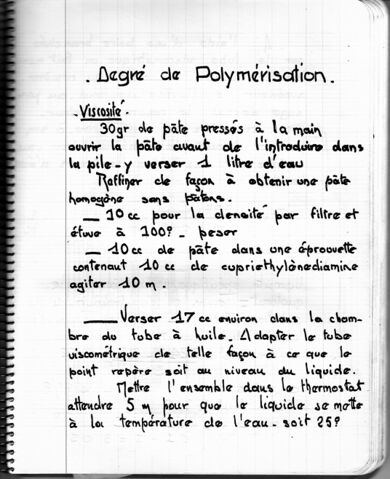 . Degré de Polymérisation.
. Viscosité.
30gr de pâte pressés à la main
ouvrir la pâte avant de l'introduire dans
la pile - y verser 1 litre d'eau
Raffiner de façon à obtenir une pâte
homogène sans patons.
— 10 cc pour la densité par filtre et
étuve à 100° - peser
— 10 cc de pâte dans une éprouvette
contenant 10 cc de cupriethylènediamine
agiter 10 m.
— Verser 17 cc environ dans la cham-
bre du tube à huile. Adapter le tube
viscométrique de telle façon à ce que le
point repère soit au niveau du liquide.
Mettre l'ensemble dans le thermostat
attendre 5 m pour que le liquide se mette
à la température de l'eau - soit 25°